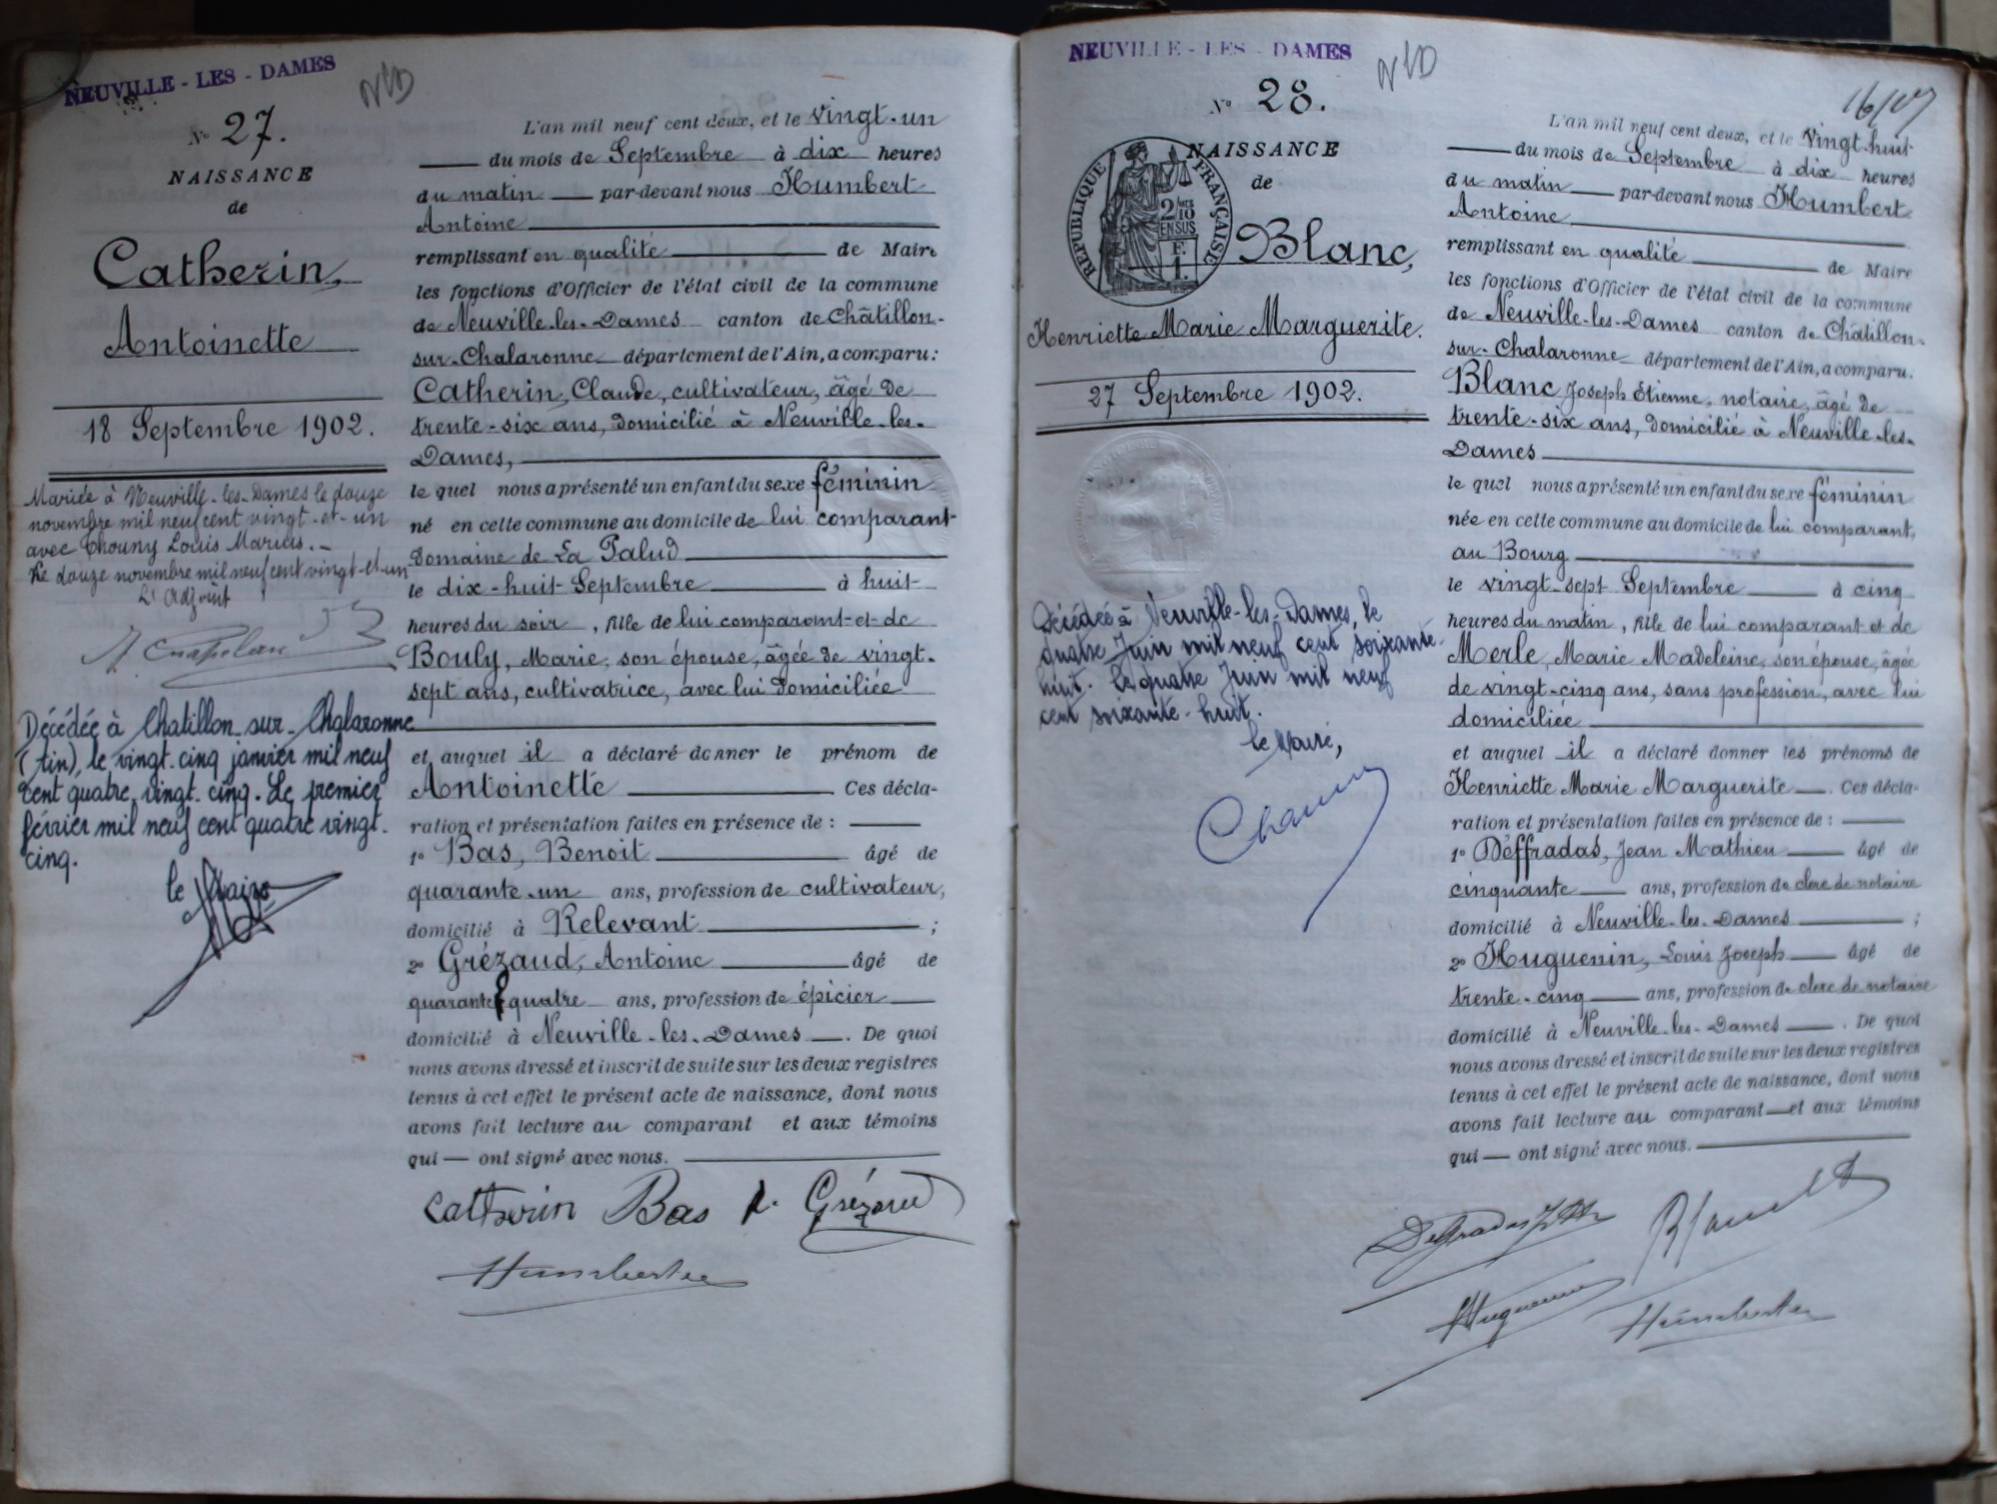 NEUVILLE - LES - DAMES
NLD
N° 27.
NAISSANCE
de
Catherin,
Antoinette
18 Septembre 1902.
Mariée à Neuville-les-Dames le douze
novembre mil neuf cent vingt-et-un
avec Thouny Louis Marius.-
Le douze novembre mil neuf cent vingt-et-un
L'Adjoint
Décédée à Chatillon-sur-Chalaronne
(Ain), le vingt-cinq janvier mil neuf
cent quatre-vingt-cinq. Le premier
février mil neuf cent quatre vingt-
cinq.
le Maire
L'an mil neuf cent deux, et le vingt-un
du mois de Septembre à dix heures
du matin par-devant nous Humbert
Antoine
remplissant en qualité de Maire
les fonctions d'Officier de l'état civil de la commune
de Neuville-les-Dames canton de Châtillon-
sur-Chalaronne département de l'Ain, a comparu:
Catherin, Claude, cultivateur, âgé de
trente-six ans, domicilié à Neuville-les-
Dames,
le quel nous a présenté un enfant du sexe féminin
né en cette commune au domicile de lui comparant
Domaine de La Palud
le dix-huit Septembre à huit
heures du soir, fille de lui comparant et de
Bouly, Marie, son épouse, âgée de vingt-
sept ans, cultivatrice, avec lui domiciliée
et auquel il a déclaré donner le prénom de
Antoinette Ces décla-
ration et présentation faites en présence de :
1° Bas, Benoit âgé de
quarante-un ans, profession de cultivateur,
domicilié à Relevant ;
2° Grézaud, Antoine âgé de
quarante quatre ans, profession de épicier
domicilié à Neuville-les-Dames. De quoi
nous avons dressé et inscrit de suite sur les deux registres
tenus à cet effet le présent acte de naissance, dont nous
avons fait lecture au comparant et aux témoins
qui ont signé avec nous.
Catherin Bas A. Grézaud
Humbert
NEUVILLE - LES - DAMES
NLD
N° 28.
NAISSANCE
de
RÉPUBLIQUE FRANÇAISE
2/10
EN SUS
F.
1.
Blanc,
Henriette Marie Marguerite.
27 Septembre 1902.
Décédée à Neuville-les-Dames, le
quatre Juin mil neuf cent soixante-
huit. Le quatre Juin mil neuf
cent soixante-huit.
le Maire,
L'an mil neuf cent deux, et le vingt-huit
du mois de Septembre à dix heures
du matin par-devant nous Humbert
Antoine
remplissant en qualité de Maire
les fonctions d'Officier de l'état civil de la commune
de Neuville-les-Dames canton de Châtillon-
sur-Chalaronne département de l'Ain, a comparu.
Blanc Joseph Etienne, notaire, âgé de
trente-six ans, domicilié à Neuville-les-
Dames
le quel nous a présenté un enfant du sexe féminin
née en cette commune au domicile de lui comparant,
au Bourg
le vingt-sept Septembre à cinq
heures du matin, fille de lui comparant et de
Merle, Marie Madeleine, son épouse, âgée
de vingt-cinq ans, sans profession, avec lui
domiciliée
et auquel il a déclaré donner les prénoms de
Henriette Marie Marguerite. Ces décla-
ration et présentation faites en présence de :
1° Déffradas, Jean Mathieu âgé de
cinquante ans, profession de clerc de notaire
domicilié à Neuville-les-Dames ;
2° Huguenin, Louis Joseph âgé de
trente-cinq ans, profession de clerc de notaire
domicilié à Neuville-les-Dames. De quoi
nous avons dressé et inscrit de suite sur les deux registres
tenus à cet effet le présent acte de naissance, dont nous
avons fait lecture au comparant et aux témoins
qui ont signé avec nous.
Huguenin Humbert